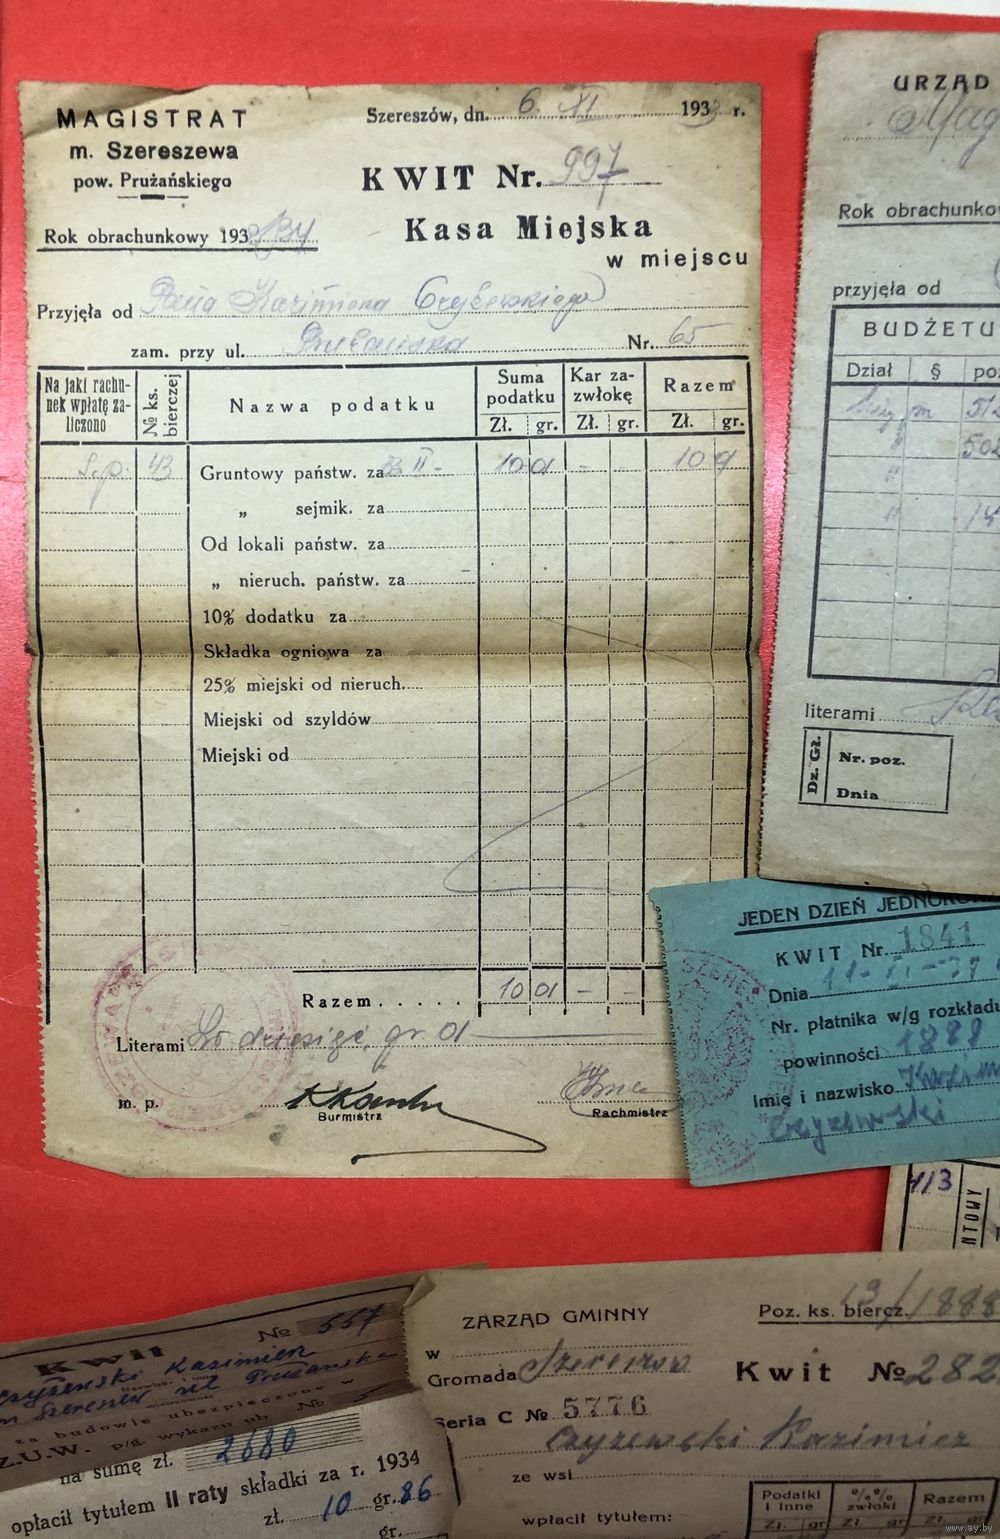 MAGISTRAT
m. Szereszewa
pow. Prużańskiego
Rok obrachunkowy 193
Szereszów, dn. 6. XI 1933 r.
KWIT Nr. 997
Kasa Miejska
w miejscu
Przyjęła od Pana Kazimierza Czyżewskiego
zam. przy ul. Nr. 65
Na jaki rachunek wpłatę zaliczono
№ ks. bierczej
Nazwa podatku
Suma podatku
Kar za zwłokę
Razem
Zł. gr. Zł. gr. Zł. gr.
43 Gruntowy państw. za 33 II - 10 01 - - 10 01
„ sejmik. za
Od lokali państw. za
„ nieruch. państw. za
10% dodatku za
Składka ogniowa za
25% miejski od nieruch.
Miejski od szyldów
Miejski od
Razem 10 01 - -
Literami Zł dziesięć, gr. 01
m. p.
Burmistrz
Rachmistrz
URZĄD
Mag
Rok obrachunkow
przyjęła od
BUDŻETU
Dział § poz
literami
Dz. Gł.
Nr. poz.
Dnia
JEDEN DZIEŃ JEDNOKO
KWIT Nr. 1841
Dnia 11-XI-37
Nr. płatnika w/g rozkładu
powinności 1888
Imię i nazwisko Kazim
Czyżewski
413
NTOWY
Kwit № 557
Czyżewski Kazimierz
Szereszew ul. Prużańska
za budowle ubezpieczone w
Z.U.W. p/g. wykazu pb. № 5
na sumę zł. 2680
opłacił tytułem II raty składki za r. 1934
zł. 10 gr. 86
gr.
ZARZĄD GMINNY
w
Gromada Szereszów
Seria C № 5776
Poz. ks. biercz. 13/1888
Kwit № 282
Czyzewski Kazimierz
ze wsi
wpłacił tytułem:
Podatki i inne
%% zwłoki
Razem
Zł. gr Zł. gr Zł. gr
www.ay.by